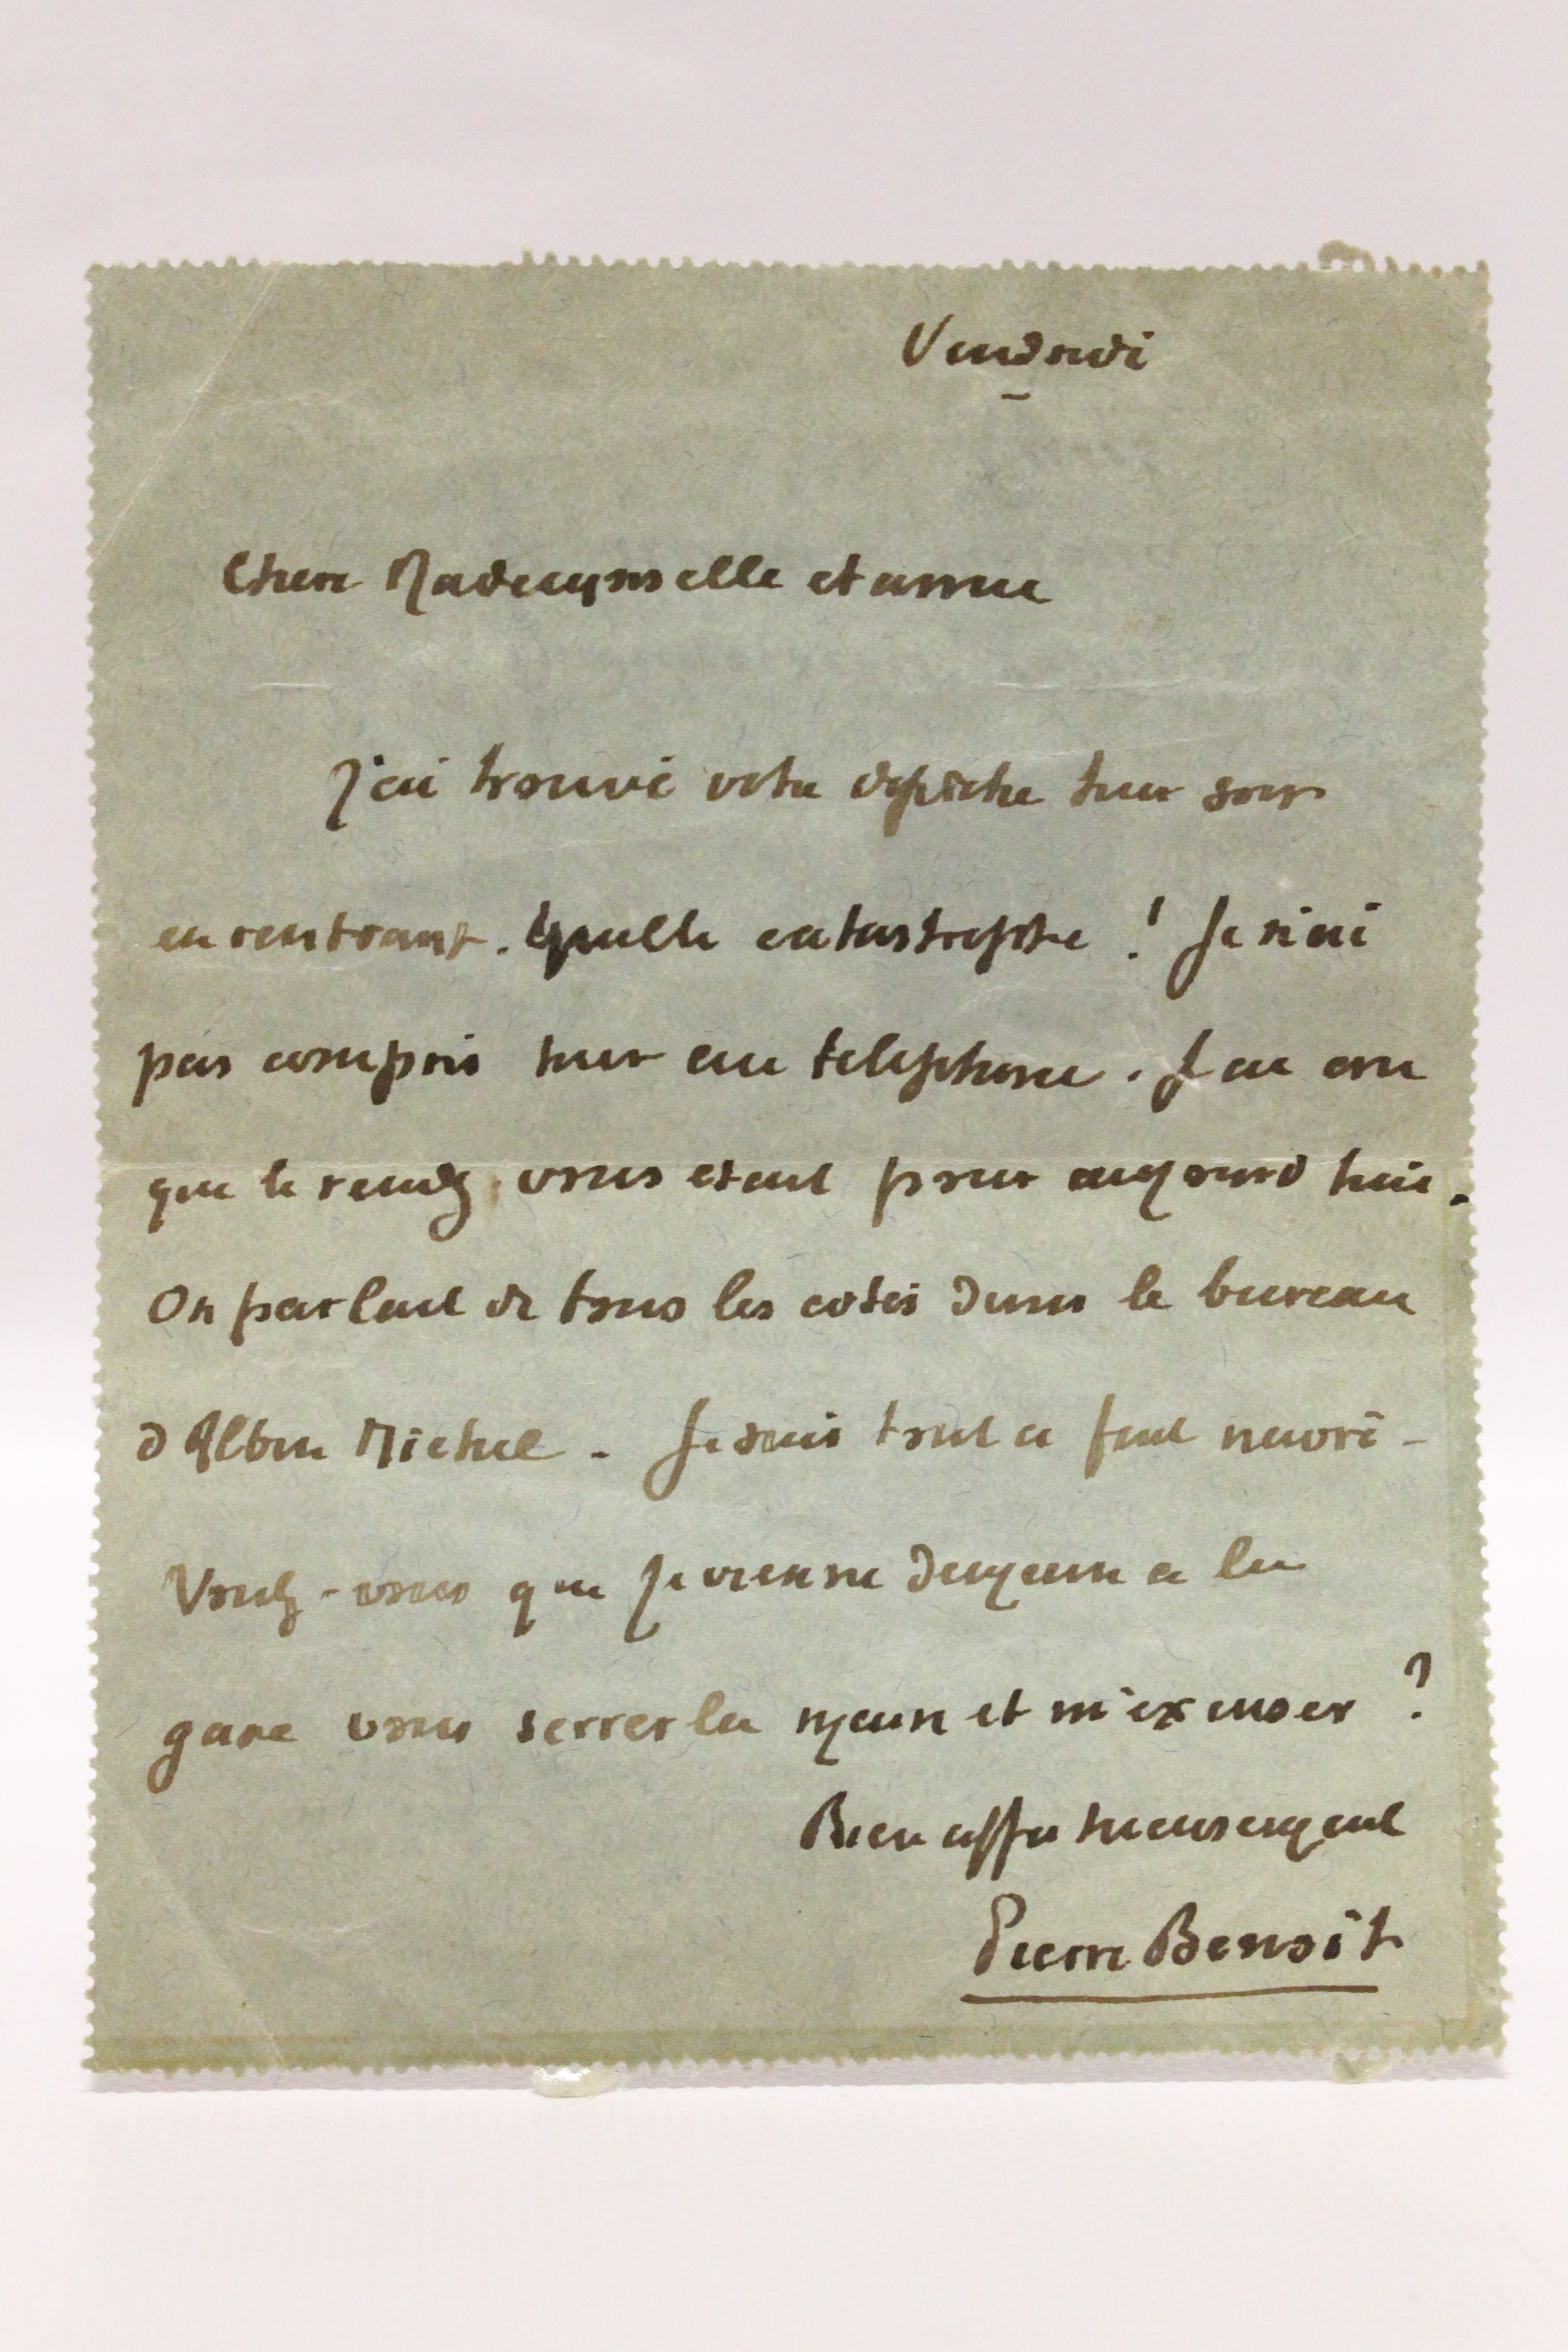 Vendredi
Chere Mademoiselle et amie
J'ai trouvé votre dépêche hier soir
en rentrant. Quelle catastrophe ! Je n'ai
pas compris hier au telephone. J'ai cru
que le rendez-vous etait pour aujourd'hui.
On parlait de tous les cotés dans le bureau
d'Albin Michel. Je suis tout a fait navré -
Voulez-vous que je vienne demain a la
gare vous serrer la main et m'excuser ?
Bien affectueusement
Pierre Benoît